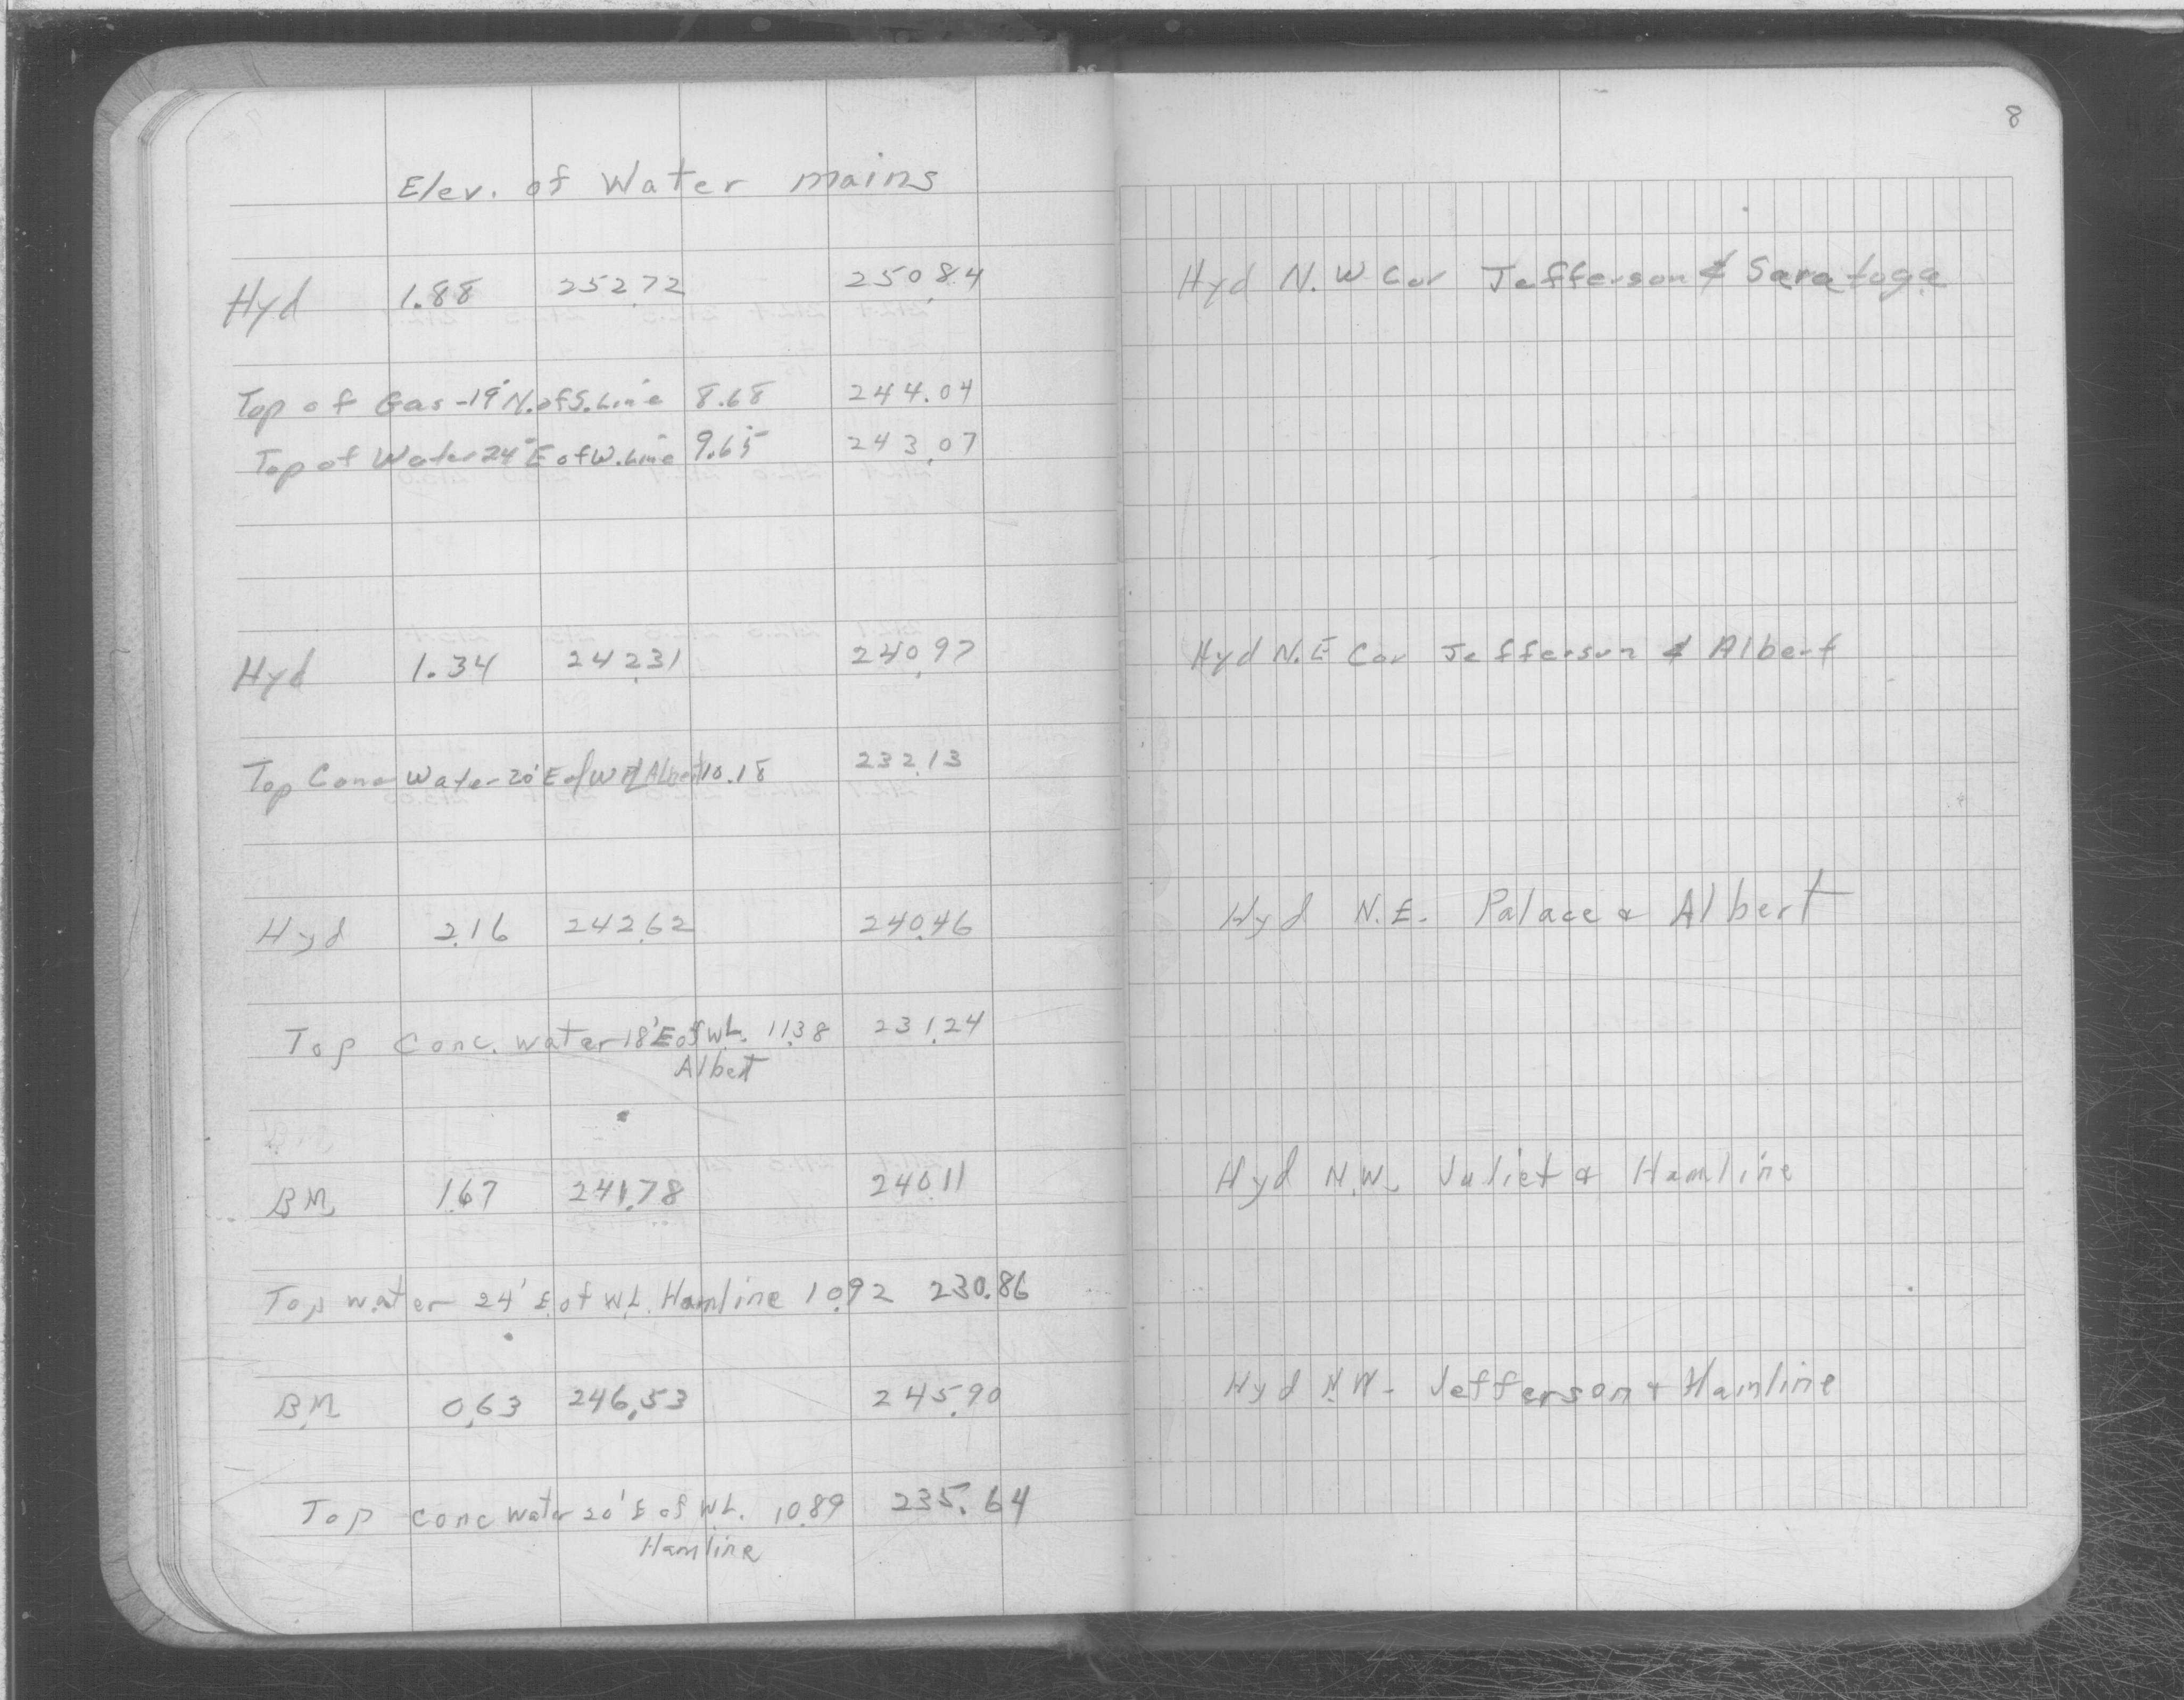 8
Elev. of Water mains
Hyd 1.88 252.72 250.84 Hyd N.W Cor Jefferson & Saratoga
Top of Gas-19' N. of S. Line 8.68 244.04
Top of Water 24' E of W. Line 9.65 243.07
Hyd 1.34 242.31 240.97 Hyd N.E Cor Jefferson & Albert
Top Conc Water 20' E of W Albert 10.18 232.13
Hyd 2.16 242.62 240.46 Hyd N.E. Palace & Albert
Top Conc. Water 18' E of W.L. 11.38 231.24
Albert
BM 1.67 241.78 240.11 Hyd N.W. Juliet & Hamline
Top water 24' E. of W.L. Hamline 10.92 230.86
BM 0.63 246.53 245.90 Hyd N.W- Jefferson & Hamline
Top conc water 20' E of W.L. 10.89 235.64
Hamline